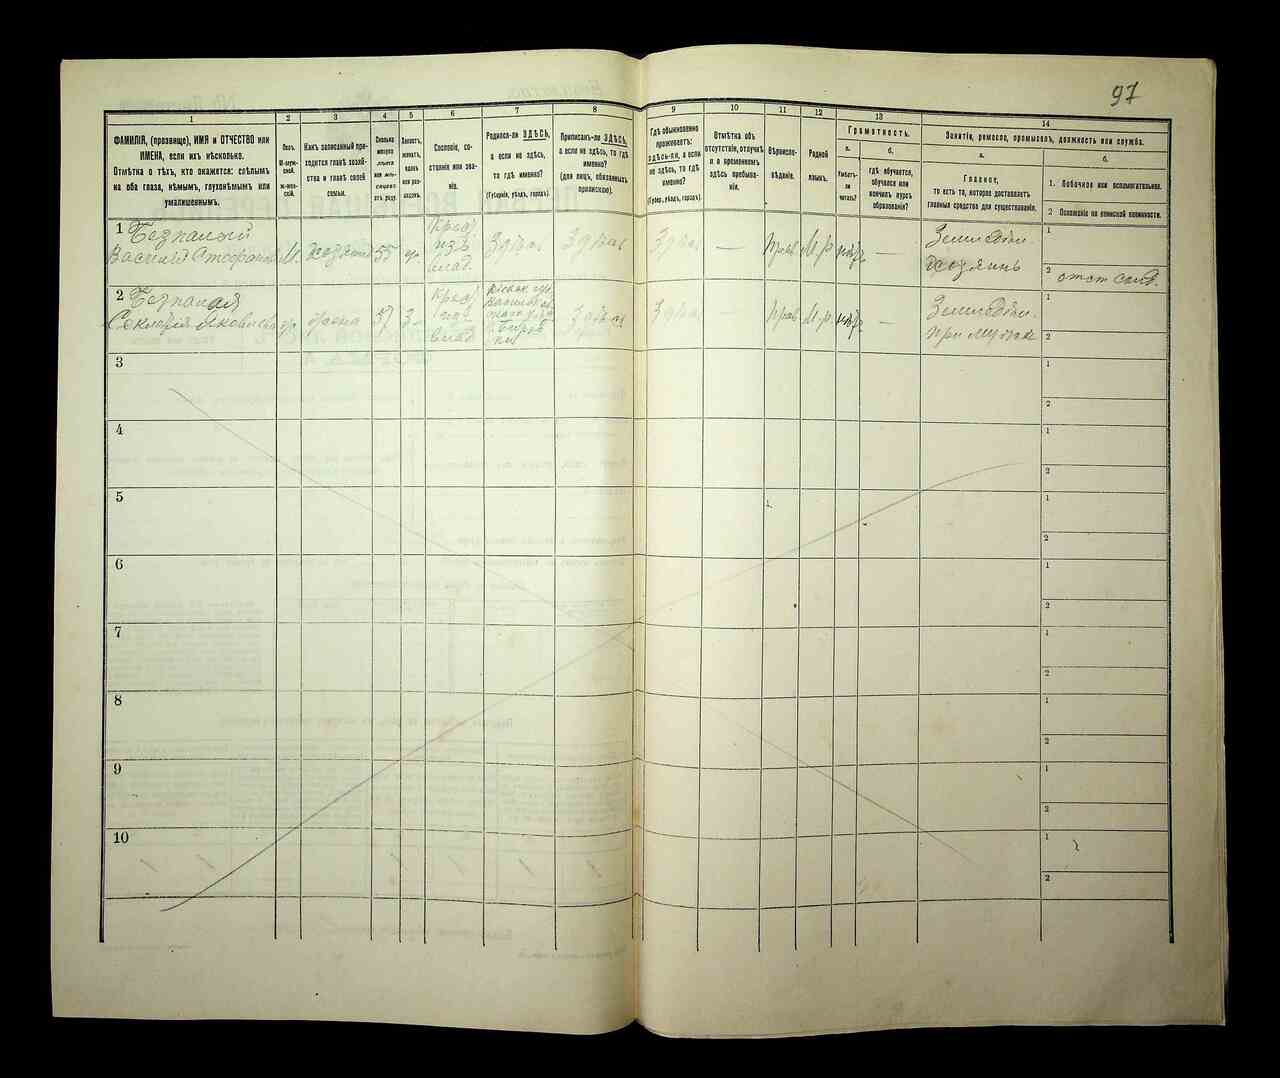 97
1
2
3
4
5
6
7
8
9
10
11
12
13
14
ФАМИЛІЯ, (прозвище), ИМЯ и ОТЧЕСТВО или
ИМЕНА, если ихъ нѣсколько.
Отмѣтка о тѣхъ, кто окажется: слѣпымъ
на оба глаза, нѣмымъ, глухонѣмымъ или
умалишеннымъ.
Полъ.
М-муж-
ской.
ж-жен-
скій.
Какъ записанный при-
ходится главѣ хозяй-
ства и главѣ своей
семьи.
Сколько
минуло
лѣтъ
или мѣ-
сяцевъ
отъ роду.
Холостъ,
женатъ,
вдовъ
или раз-
веденъ.
Сословіе, со-
стояніе или зва-
ніе.
Родился-ли ЗДѢСЬ,
а если не здѣсь,
то гдѣ именно?
(Губернія, уѣздъ, городъ).
Приписанъ-ли ЗДѢСЬ,
а если не здѣсь, то гдѣ
именно?
(для лицъ, обязанныхъ
припискою).
Гдѣ обыкновенно
проживаетъ:
здѣсь-ли, а если
не здѣсь, то гдѣ
именно?
(Губерн., уѣздъ, городъ).
Отмѣтка объ
отсутствіи, отлучкѣ
и о временномъ
здѣсь пребыва-
ніи.
Вѣроиспо-
вѣданіе.
Родной
языкъ.
Грамотность.
а.
Умѣетъ-
ли
читать?
б.
гдѣ обучается,
обучался или
кончилъ курсъ
образованія?
Занятіе, ремесло, промыселъ, должность или служба.
а.
Главное,
то есть то, которое доставляетъ
главныя средства для существованія.
б.
1. Побочное или вспомогательное.
2 Положеніе по воинской повинности.
1 Безпалый
Василій Стефановъ М. хозяинъ 55
Крест
изъ
влад.
Здѣсь Здѣсь Здѣсь — Прав М.р нѣтъ —
Земледѣл.
хозяинъ
1
2
2 Безпалая
Яковлева жена 37
Крест
влад
Здѣсь Здѣсь — Прав М.р. нѣтъ —
Земледѣл.
при мужѣ
1
2
3
1
2
4
1
2
5
1
2
6
1
2
7
1
2
8
1
2
9
1
2
10
1
2